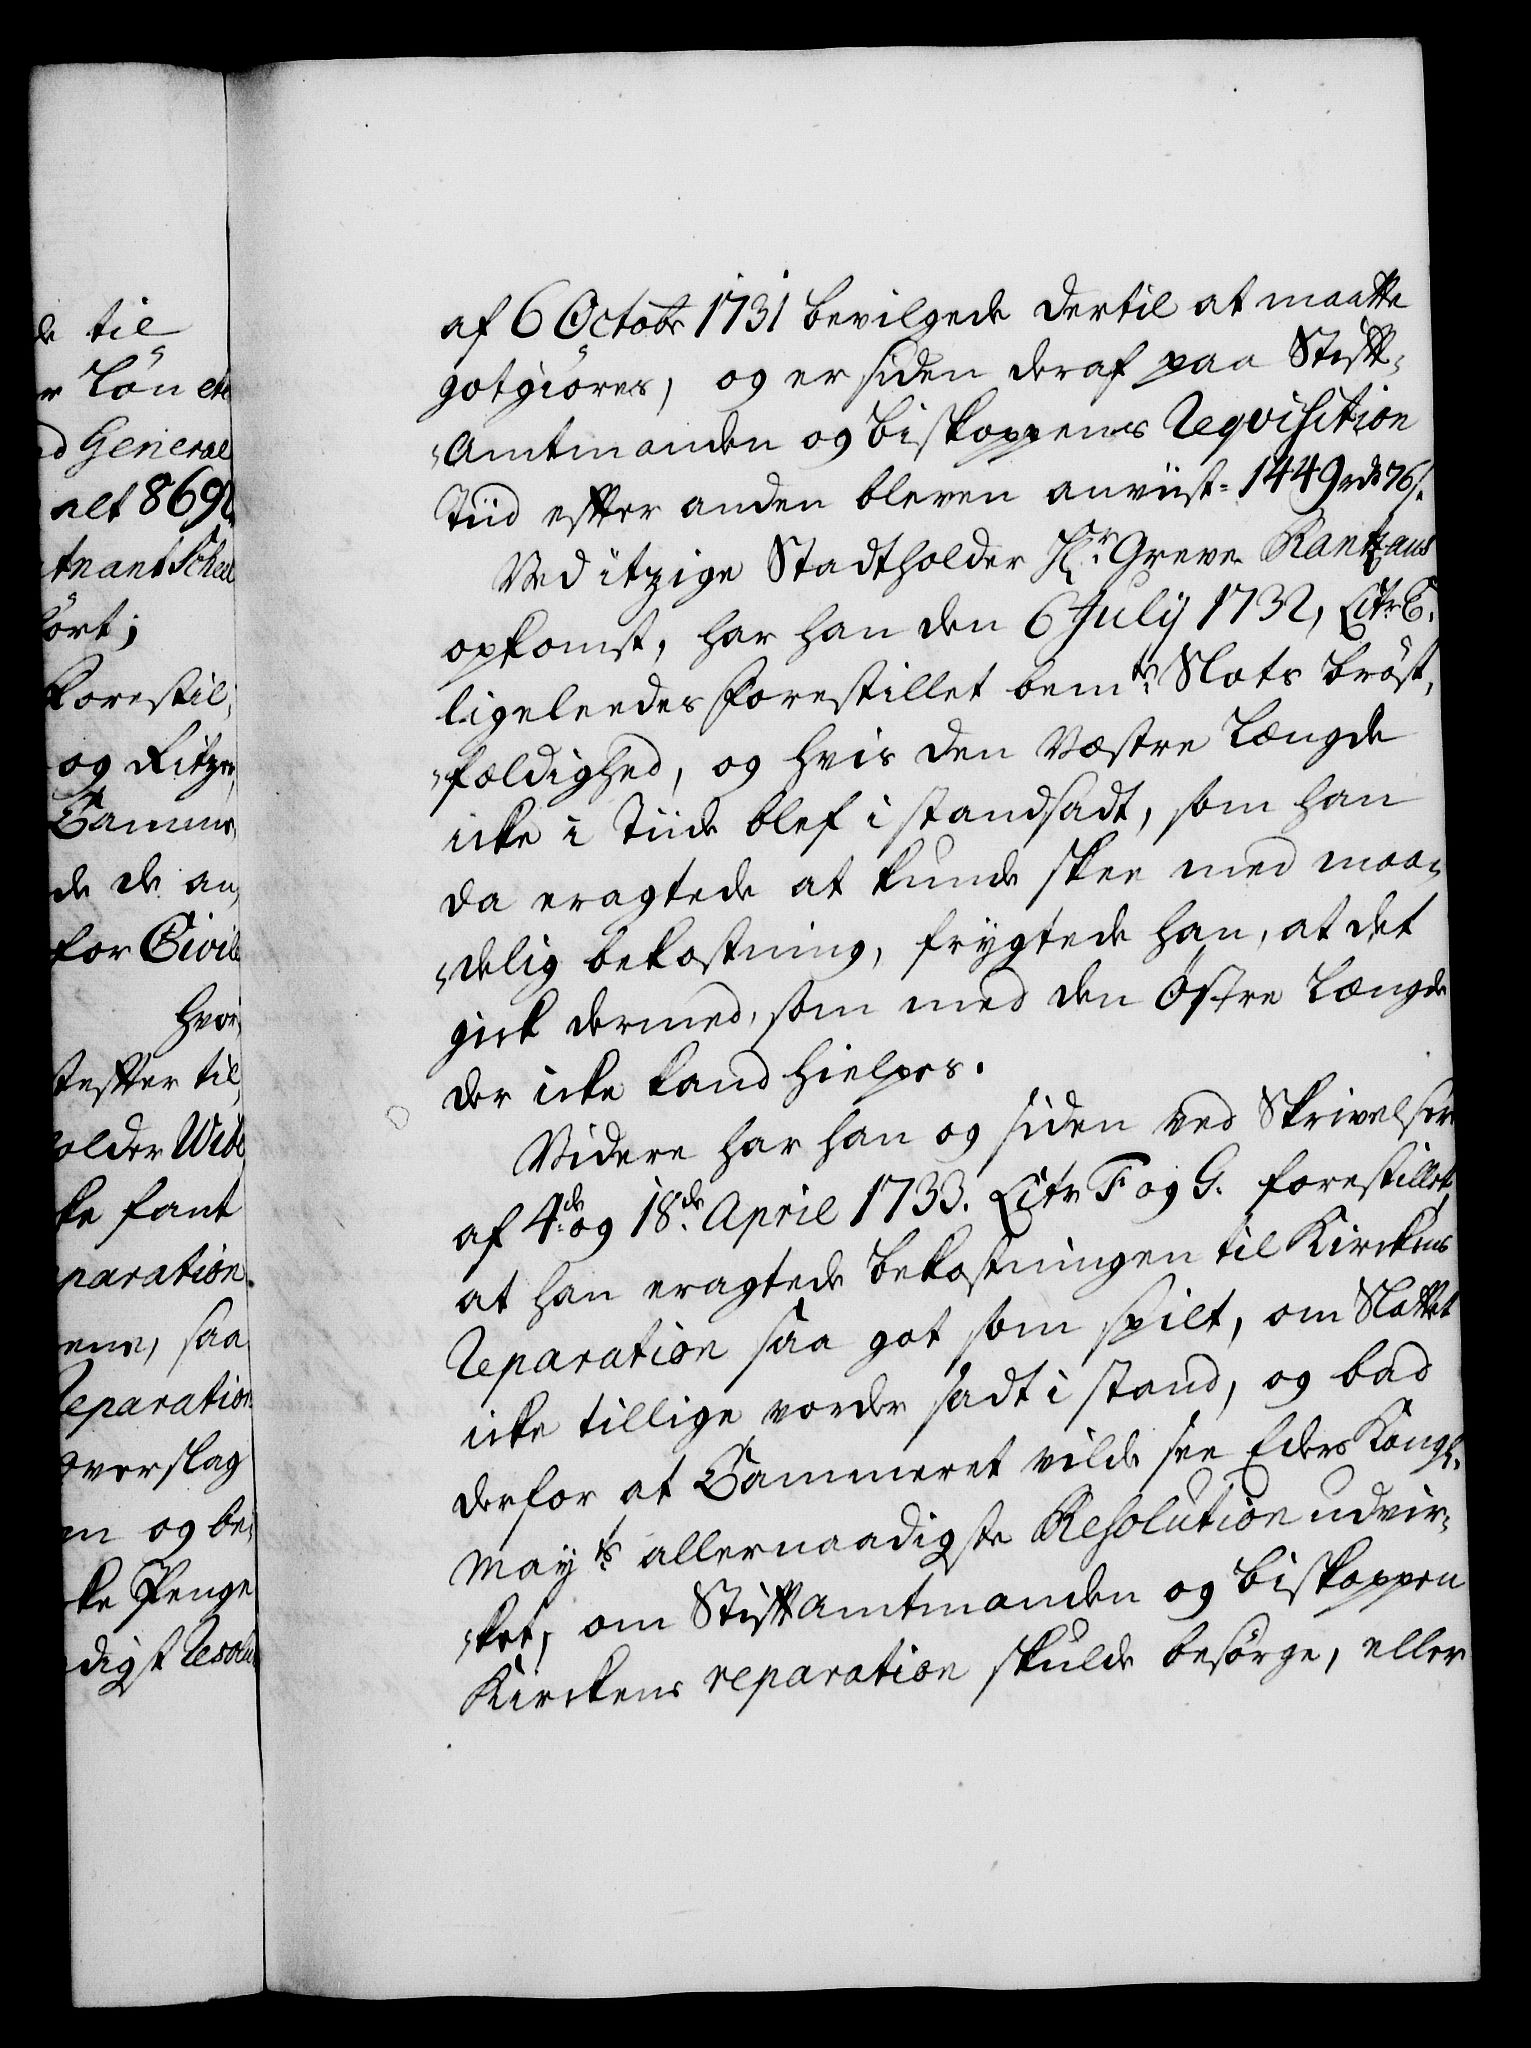 de til
r Løn etc
nd General
alt 8692
tnant Scheel
ført;
forestil,
og Ritzer,
Cammer,
de de an,
for Civile
hvor,
stefter til,
older Wibe
ke fant
paration
ene, saa
Reparation
overslag
en og be,
ke Penge
digst Resolu
af 6 Octobr 1731 bevilgede dertil at maatte
gotgiøres, og er siden deraf paa Stift-
Amtmanden og biskoppens Reqvisition
Tiid efter anden bleven anviist- 1449 rd 76 s.
Ved itzige Stadtholder Hr. Greve Rantzaus
opkomst, har han den 6 Julij 1732, Litr E.
ligeleedes forestillet bemte Slots brøst,
fældighed, og hvis den Vestre Længde
icke i Tiide blef i standsadt, som han
da eragtede at kunde skee med maa,
delig bekostning, frygtede han, at det
gick dermed, som med den Østre Længde
der icke kand hielpes.
Videre har han og siden ved Skrivelser
af 4de og 18de April 1733. Litr F og G. forestillet,
at han eragtede bekostningen til Kirckens
Reparation saa got som spilt, om Slottet
icke tillige vorder sadt i stand, og bad
derfor at Cammeret vilde see Eders Kongl.
Mayts allernaadigste Resolution udvir-
ket, om Stiftamtmanden og biskoppen
Kirckens reparation skulde besørge, eller